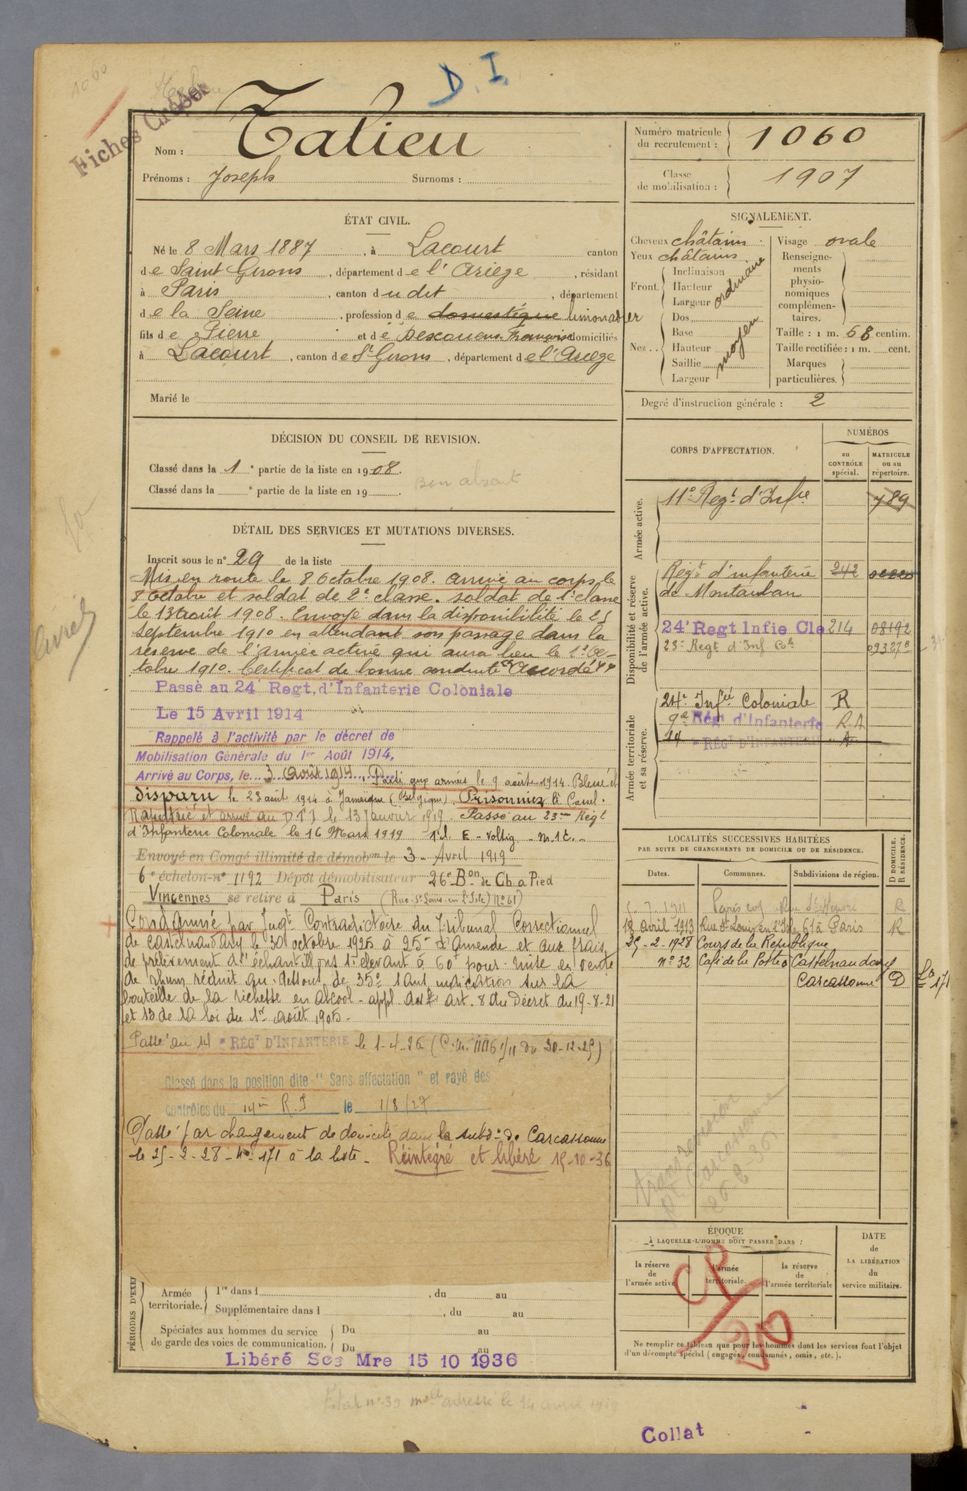 1060
D. I.
Fiches Croisées
Nom : Talieu
Prénoms : Joseph Surnoms :
Numéro matricule du recrutement : 1060
Classe de mobilisation : 1907
ÉTAT CIVIL.
Né le 8 Mars 1887, à Lacourt canton
de Saint Girons, département de l'Ariège, résidant
à Paris, canton du dit, département
de la Seine, profession de domestique limonadier
fils de Pierre et de Descouens Françoise domiciliés
à Lacourt, canton de St Girons, département de l'Ariège
Marié le
SIGNALEMENT.
Cheveux châtains.
Yeux châtains.
Front. Inclinaison Hauteur Largeur ordinaire
Nez.. Dos Base Hauteur Saillie Largeur moyen
Visage ovale
Renseignements physionomiques complémentaires.
Taille : 1 m. 68 centim.
Taille rectifiée : 1 m. cent.
Marques particulières.
Degré d'instruction générale : 2
DÉCISION DU CONSEIL DE REVISION.
Classé dans la 1e partie de la liste en 1908.
Classé dans la e partie de la liste en 19
Bon absent
CORPS D'AFFECTATION.
NUMÉROS
au CONTRÔLE spécial.
MATRICULE ou au répertoire.
Armée active.
11e Regt d'Infie 789
Disponibilité et réserve de l'armée active.
Regt d'infanterie 242
de Montauban
24e Regt Infie Cle 214 08192
23e Regt d'Inf Cole
Armée territoriale et sa réserve.
24e Infie Coloniale R
9e Régt d'Infanterie R.A
14e RÉGt D'INFANTERIE A
DÉTAIL DES SERVICES ET MUTATIONS DIVERSES.
Inscrit sous le n° 29 de la liste
Mis en route le 8 octobre 1908. Arrivé au corps le
8 octobre et soldat de 2e classe. Soldat de 1e classe
le 13 août 1908. Envoyé dans la disponibilité le 25
septembre 1910 en attendant son passage dans la
réserve de l'armée active qui aura lieu le 1er Oc-
tobre 1910. Certificat de bonne conduite Accordé
Passé au 24e Regt. d'Infanterie Coloniale
Le 15 Avril 1914
Rappelé à l'activité par le décret de
Mobilisation Générale du 1er Août 1914,
Arrivé au Corps, le 3 Août 1914. Parti aux armées le 9 août 1914. Blessé et
disparu le 23 août 1914 à Jamoigne (Belgique). Prisonnier à Cassel.
Rapatrié et arrivé au D T I le 13 janvier 1919. Passé au 23me Regt
d'Infanterie Coloniale le 16 Mars 1919
Envoyé en Congé illimité de démobon le 3 - Avril 1919
6e échelon n° 1192 Dépôt démobilisateur 26e Bon de Ch. à Pied
Vincennes se retire à Paris (Rue St Louis en l'Isle) N° 61
Condamné par Jugt Contradictoire du Tribunal Correctionnel
de Castelnaudary le 30 octobre 1925 à 25f d'Amende et aux frais
de prélèvement d'échantillons s'élevant à 60f pour mise en vente
de rhum réduit au-dessous de 35° sans indication sur la
bouteille de la richesse en alcool - appl. des art. 8 du Décret du 19-8-21
et 13 de la loi du 1er août 1905.
Passé au 14e RÉGt D'INFANTERIE le 1-4-26
Classé dans la position dite "Sans affectation" et rayé des
contrôles du 14me R.I le 1/8/27
Passé par changement de domicile dans la subdon de Carcassonne
le 25-2-28 - N° 171 à la liste - Réintégré et libéré 15-10-36
LOCALITÉS SUCCESSIVES HABITÉES
PAR SUITE DE CHANGEMENTS DE DOMICILE OU DE RÉSIDENCE.
Dates. Communes. Subdivisions de région. D DOMICILE. R RÉSIDENCE.
18 avril 1913 Rue St Louis en l'Isle 61 à Paris R
25-2-1928 Cours de la République
n° 32 Café de la Poste à Castelnaudary
Carcassonne D
ÉPOQUE
À LAQUELLE L'HOMME DOIT PASSER DANS :
la réserve de l'armée active
l'armée territoriale.
la réserve de l'armée territoriale
DATE de LA LIBÉRATION du service militaire.
CP
Ne remplir ce tableau que pour les hommes dont les services font l'objet
d'un décompte spécial (engagés, condamnés, omis, etc.).
PÉRIODES D'EXER
Armée territoriale. 1re dans l , du au
Supplémentaire dans l , du au
Spéciales aux hommes du service de garde des voies de communication. Du au
Du au
Libéré Ses Mre 15 10 1936
Collat